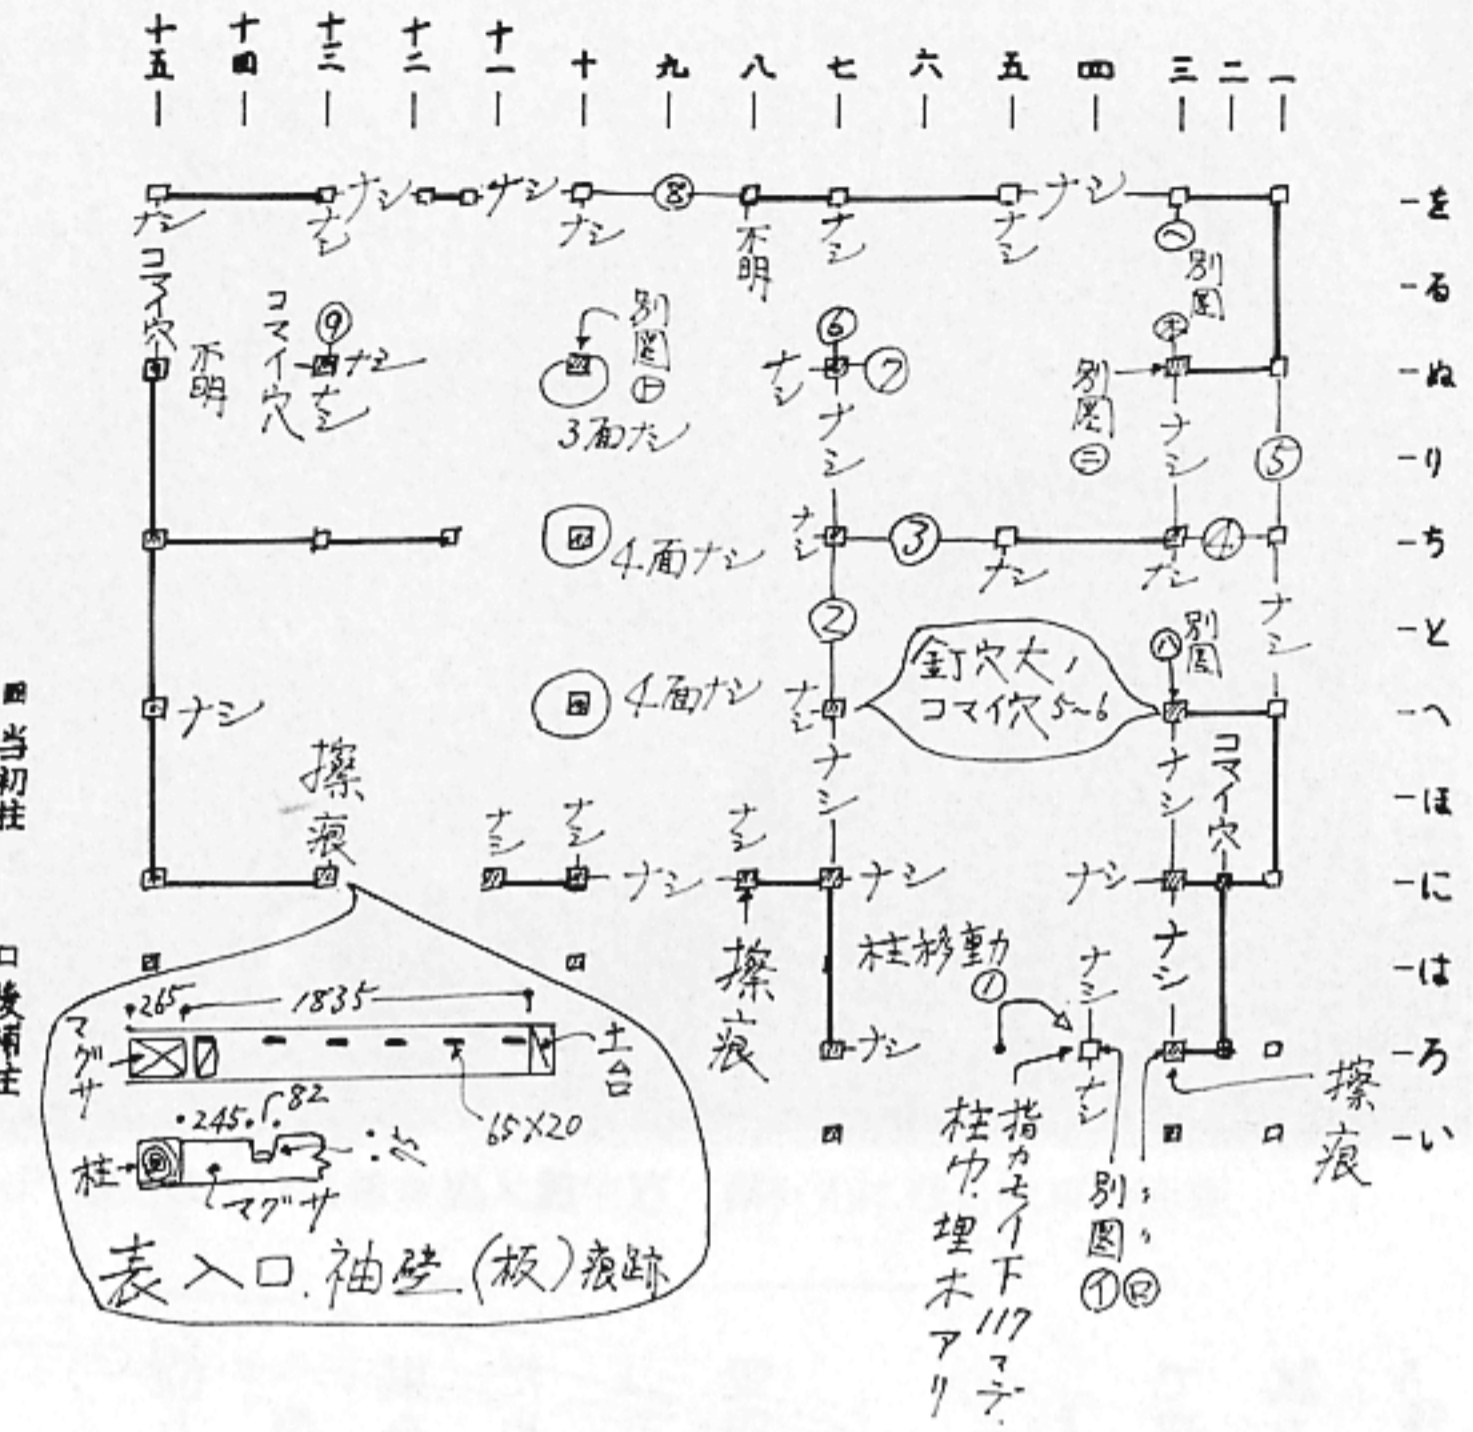 十五 十四 十三 十二 十一 十 九 八 七 六 五 四 三 二 一
を
る
ぬ
り
ち
と
へ
ほ
に
は
ろ
い
ナシ
ナシ
ナシ
ナシ
ナシ
⑧
不明
ナシ
ナシ
ナシ
㋬
別図
コマイ穴
不明
コマイ穴
⑨
ナシ
ナシ
別図㋣
3面ナシ
⑥
⑦
ナシ
ナシ
㋭
別図㊁
ナシ
⑤
4面ナシ
ナシ
③
ナシ
④
ナシ
ナシ
②
釘穴大、
コマイ穴5~6
㋩
別図
ナシ
4面ナシ
ナシ
ナシ
ナシ
コマイ穴
擦痕
ナシ
ナシ
ナシ
ナシ
ナシ
ナシ
ナシ
擦痕
柱移動
①
ナシ
ナシ
ナシ
ナシ
擦痕
指カモイ下117マデ.
柱内.埋木アリ
別図㋑㋺
265
1835
マグサ
土台
65×20
245
82
柱
マグサ
表入口.袖壁.(板)痕跡
当初柱
後補柱